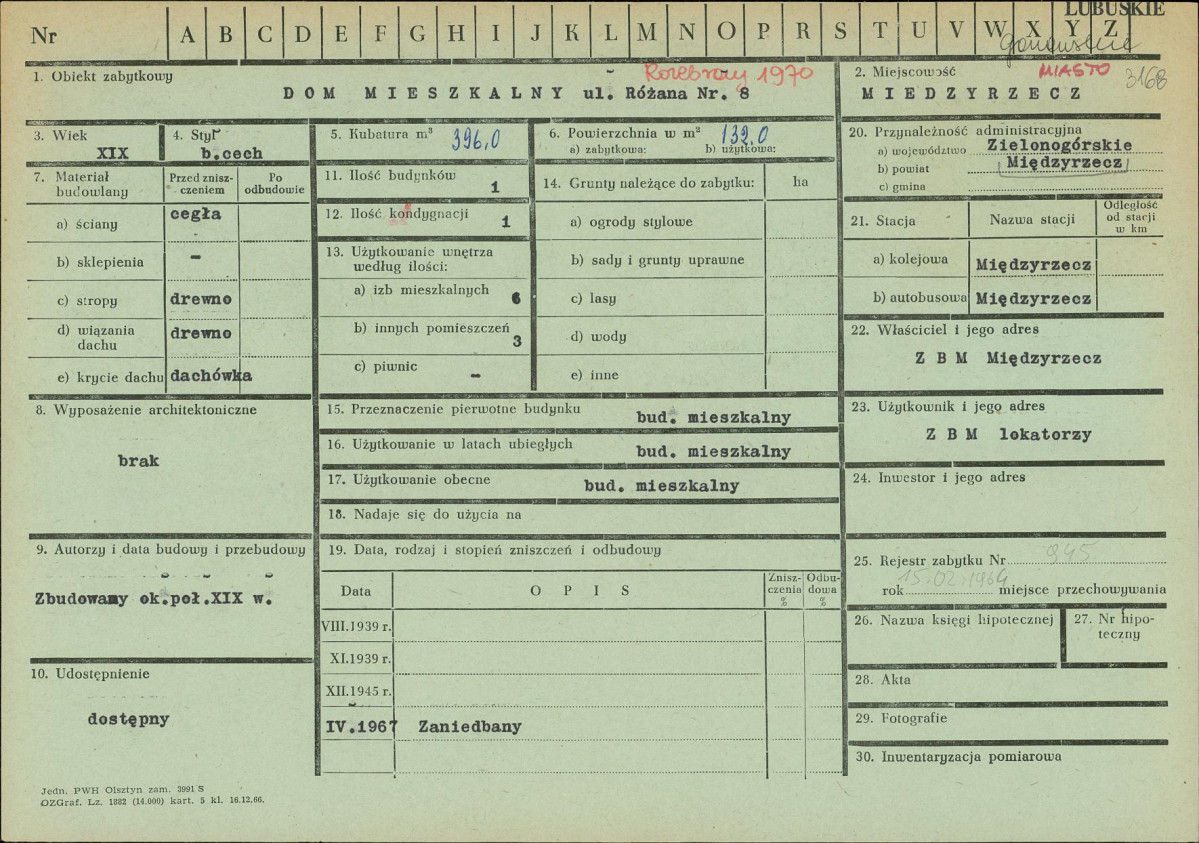 Nr A B C D E F G H I J K L M N O P R S T U V W X Y Z
LUBUSKIE
1. Obiekt zabytkowy
Rozebrany 1970
DOM MIESZKALNY ul. Różana Nr. 8
2. Miejscowość
MIASTO 3168
MIEDZYRZECZ
3. Wiek
XIX
4. Styl
b.cech
5. Kubatura m³ 396,0
6. Powierzchnia w m² 132,0
a) zabytkowa: b) użytkowa:
7. Materiał budowlany
Przed znisz-
czeniem
Po
odbudowie
a) ściany cegła
b) sklepienia -
c) stropy drewno
d) wiązania
dachu drewno
e) krycie dachu dachówka
8. Wyposażenie architektoniczne
brak
9. Autorzy i data budowy i przebudowy
Zbudowany ok.poł.XIX w.
10. Udostępnienie
dostępny
11. Ilość budynków
1
12. Ilość kondygnacji
1
13. Użytkowanie wnętrza
według ilości:
a) izb mieszkalnych 6
b) innych pomieszczeń
3
c) piwnic -
14. Grunty należące do zabytku: ha
a) ogrody stylowe
b) sady i grunty uprawne
c) lasy
d) wody
e) inne
15. Przeznaczenie pierwotne budynku bud. mieszkalny
16. Użytkowanie w latach ubiegłych bud. mieszkalny
17. Użytkowanie obecne bud. mieszkalny
18. Nadaje się do użycia na
19. Data, rodzaj i stopień zniszczeń i odbudowy
Data OPIS Znisz-
czenia
% Odbu-
dowa
%
VIII.1939 r.
XI.1939 r.
XII.1945 r.
IV.1967 Zaniedbany
20. Przynależność administracyjna
a) województwo Zielonogórskie
b) powiat Międzyrzecz
c) gmina
21. Stacja Nazwa stacji Odległość
od stacji
w km
a) kolejowa Międzyrzecz
b) autobusowa Międzyrzecz
22. Właściciel i jego adres
Z B M Międzyrzecz
23. Użytkownik i jego adres
Z B M lokatorzy
24. Inwestor i jego adres
25. Rejestr zabytku Nr 945
rok 15.02.1964 miejsce przechowywania
26. Nazwa księgi hipotecznej
27. Nr hipo-
teczny
28. Akta
29. Fotografie
30. Inwentaryzacja pomiarowa
Jedn. PWH Olsztyn zam. 3991 S
OZGraf. Lz. 1882 (14.000) kart. 5 kl. 16.12.66.